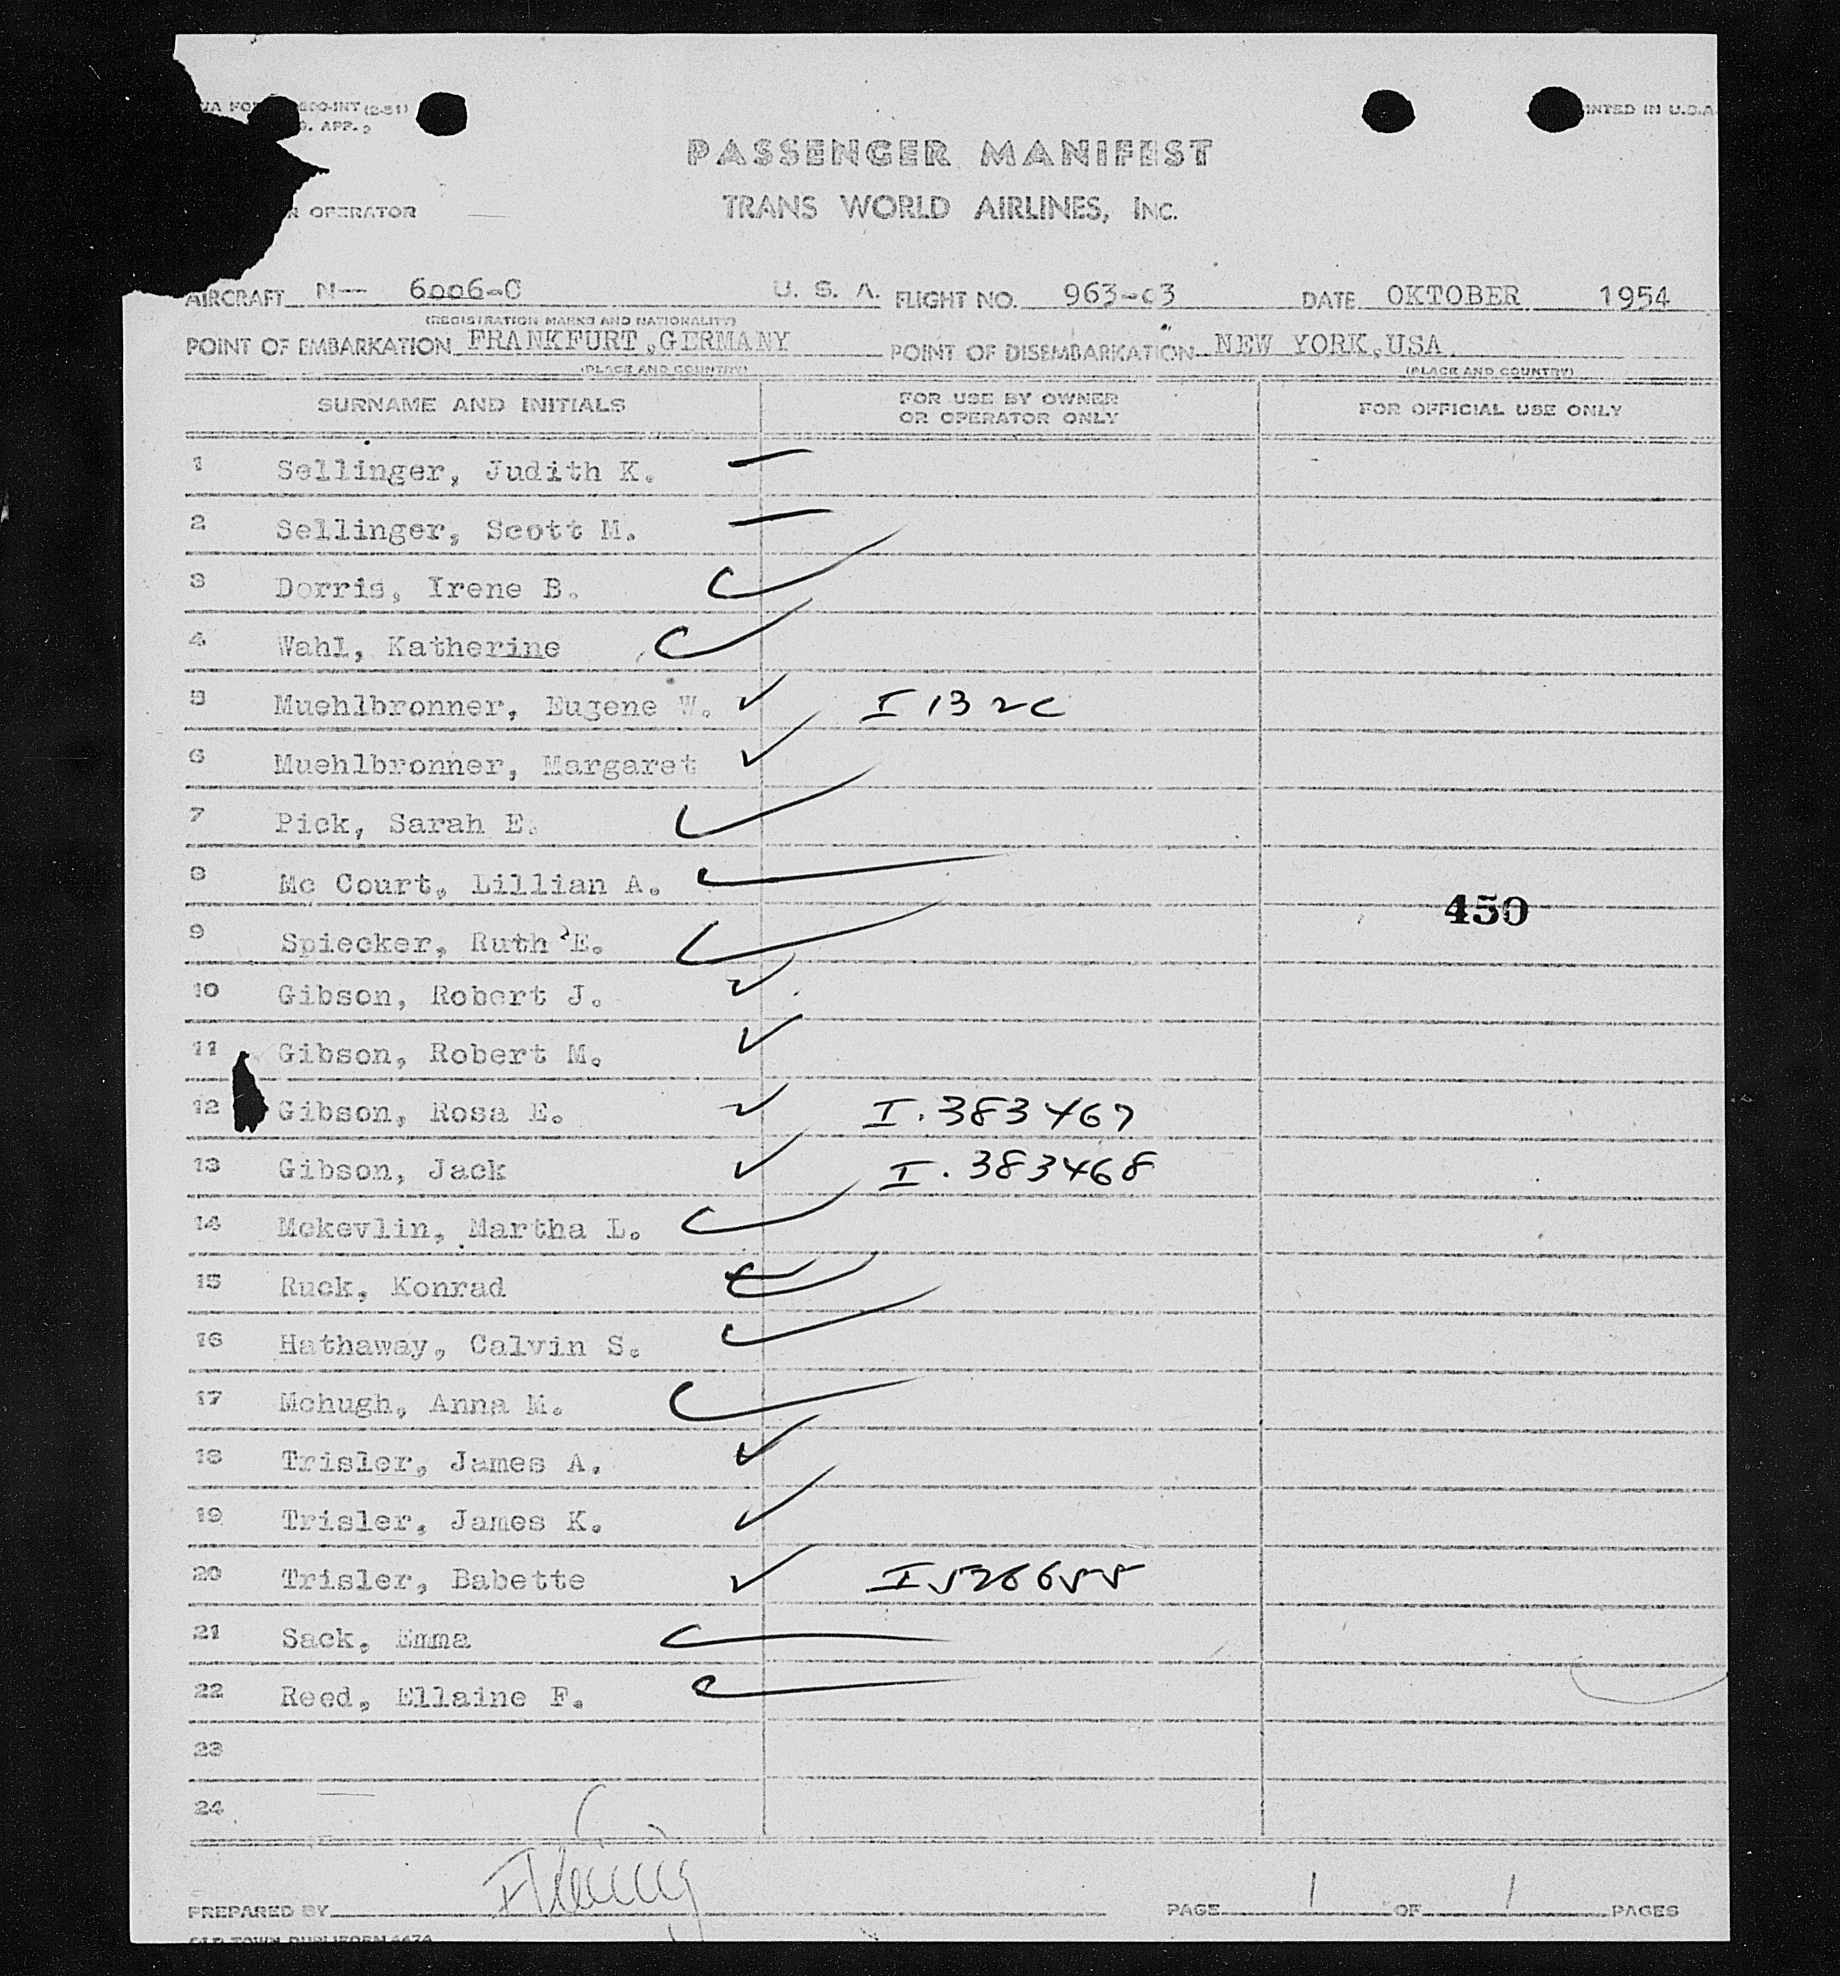 500-INT (2-51)
PRINTED IN U.S.A.
APP.
PASSENGER MANIFEST
OPERATOR
TRANS WORLD AIRLINES, INC.
AIRCRAFT N-- 6006-C U. S. A. FLIGHT NO. 963-03 DATE OKTOBER 1954
(REGISTRATION MARKS AND NATIONALITY)
POINT OF EMBARKATION FRANKFURT,GERMANY POINT OF DISEMBARKATION NEW YORK,USA
(PLACE AND COUNTRY) (PLACE AND COUNTRY)
SURNAME AND INITIALS FOR USE BY OWNER OR OPERATOR ONLY FOR OFFICIAL USE ONLY
1 Sellinger, Judith K.
2 Sellinger, Scott M.
3 Dorris, Irene B.
4 Wahl, Katherine
5 Muehlbronner, Eugene W. I 132C
6 Muehlbronner, Margaret
7 Pick, Sarah E.
8 Mc Court, Lillian A.
450
9 Spiecker, Ruth E.
10 Gibson, Robert J.
11 Gibson, Robert M.
12 Gibson, Rosa E. I.383467
13 Gibson, Jack I.383468
14 Mckevlin, Martha L.
15 Ruck, Konrad
16 Hathaway, Calvin S.
17 Mchugh, Anna M.
18 Trisler, James A.
19 Trisler, James K.
20 Trisler, Babette I 526655
21 Sack, Emma
22 Reed, Ellaine F.
23
24
PREPARED BY PAGE 1 OF 1 PAGES
OLD TOWN DUPLIFORM